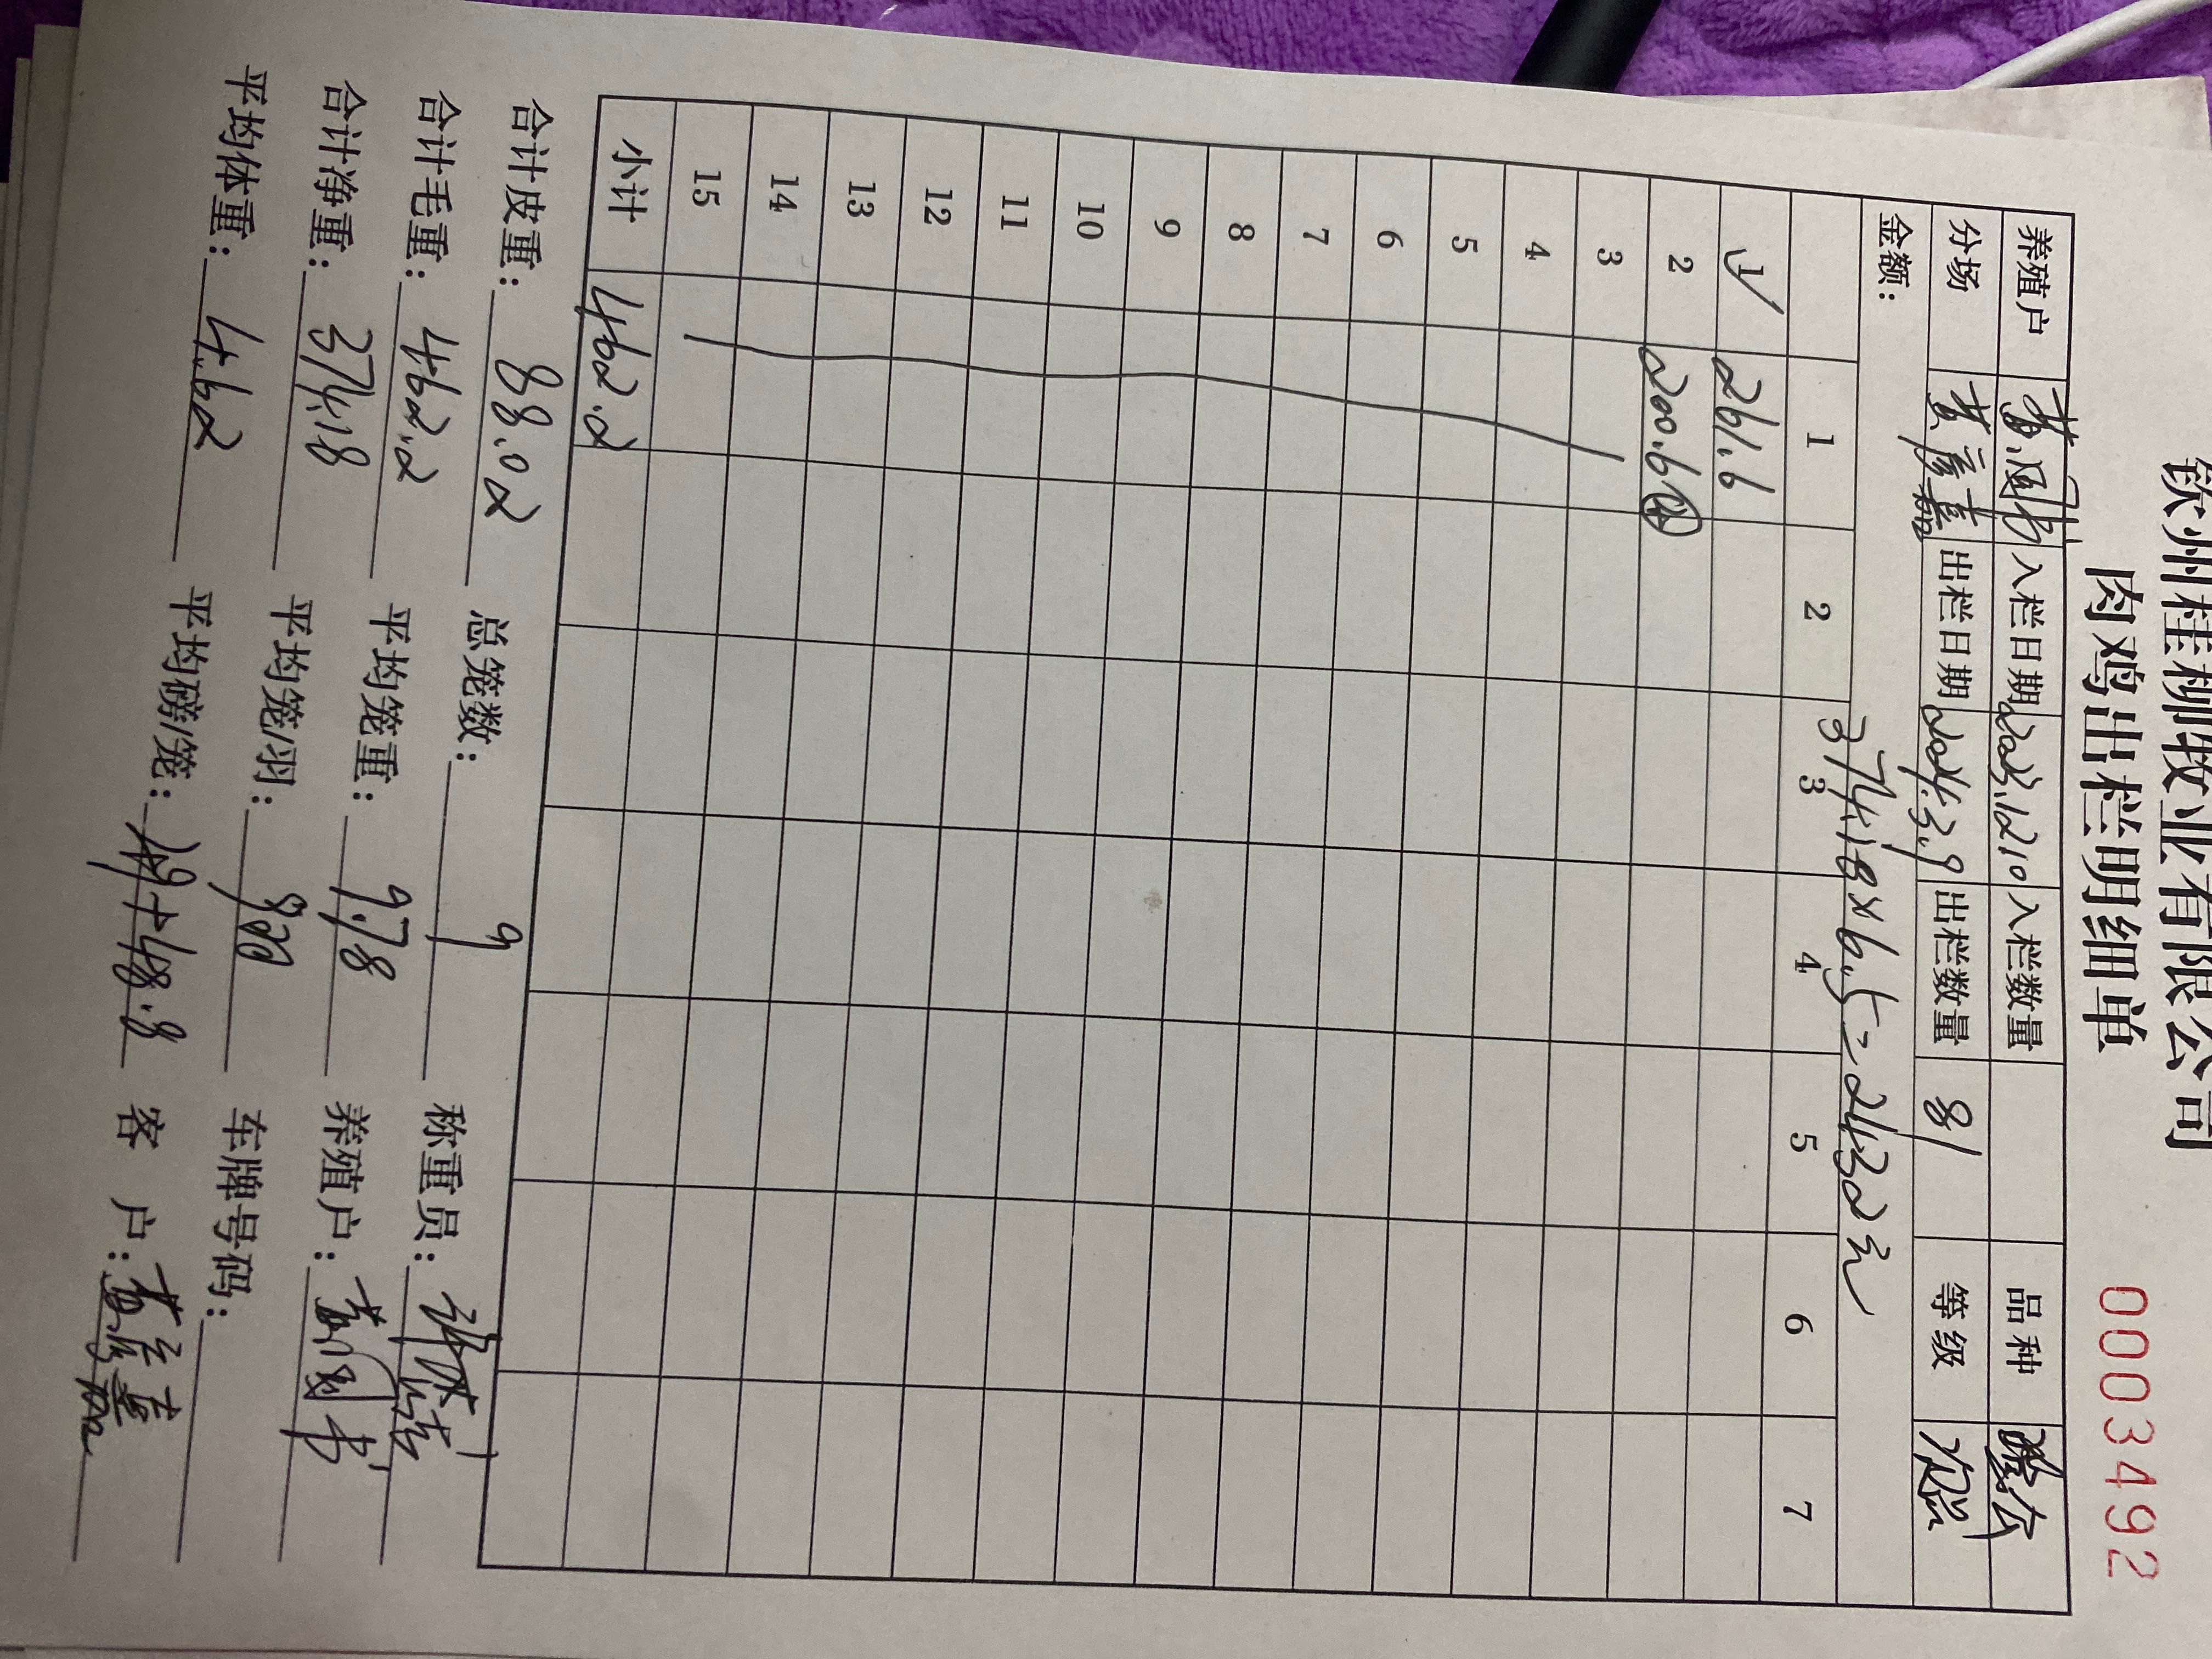 钦州桂柳牧业有限公司
肉鸡出栏明细单
00003492
养殖户 黄国书 入栏日期 2023.12.10 入栏数量 品种
分场 黄彦嘉 出栏日期 2024.3.9 出栏数量 81 等级
金额: 374.18×6.5=2432元
1 2 3 4 5 6 7
1 261.6
2 200.6 ④
3
4
5
6
7
8
9
10
11
12
13
14
15
小计 462.2
合计皮重: 88.02 总笼数: 9 称重员:
合计毛重: 462.2 平均笼重: 9.78 养殖户: 黄国书
合计净重: 374.18 平均笼/羽: 车牌号码:
平均体重: 4.62 平均磅/笼: 48.8 客户: 黄彦嘉